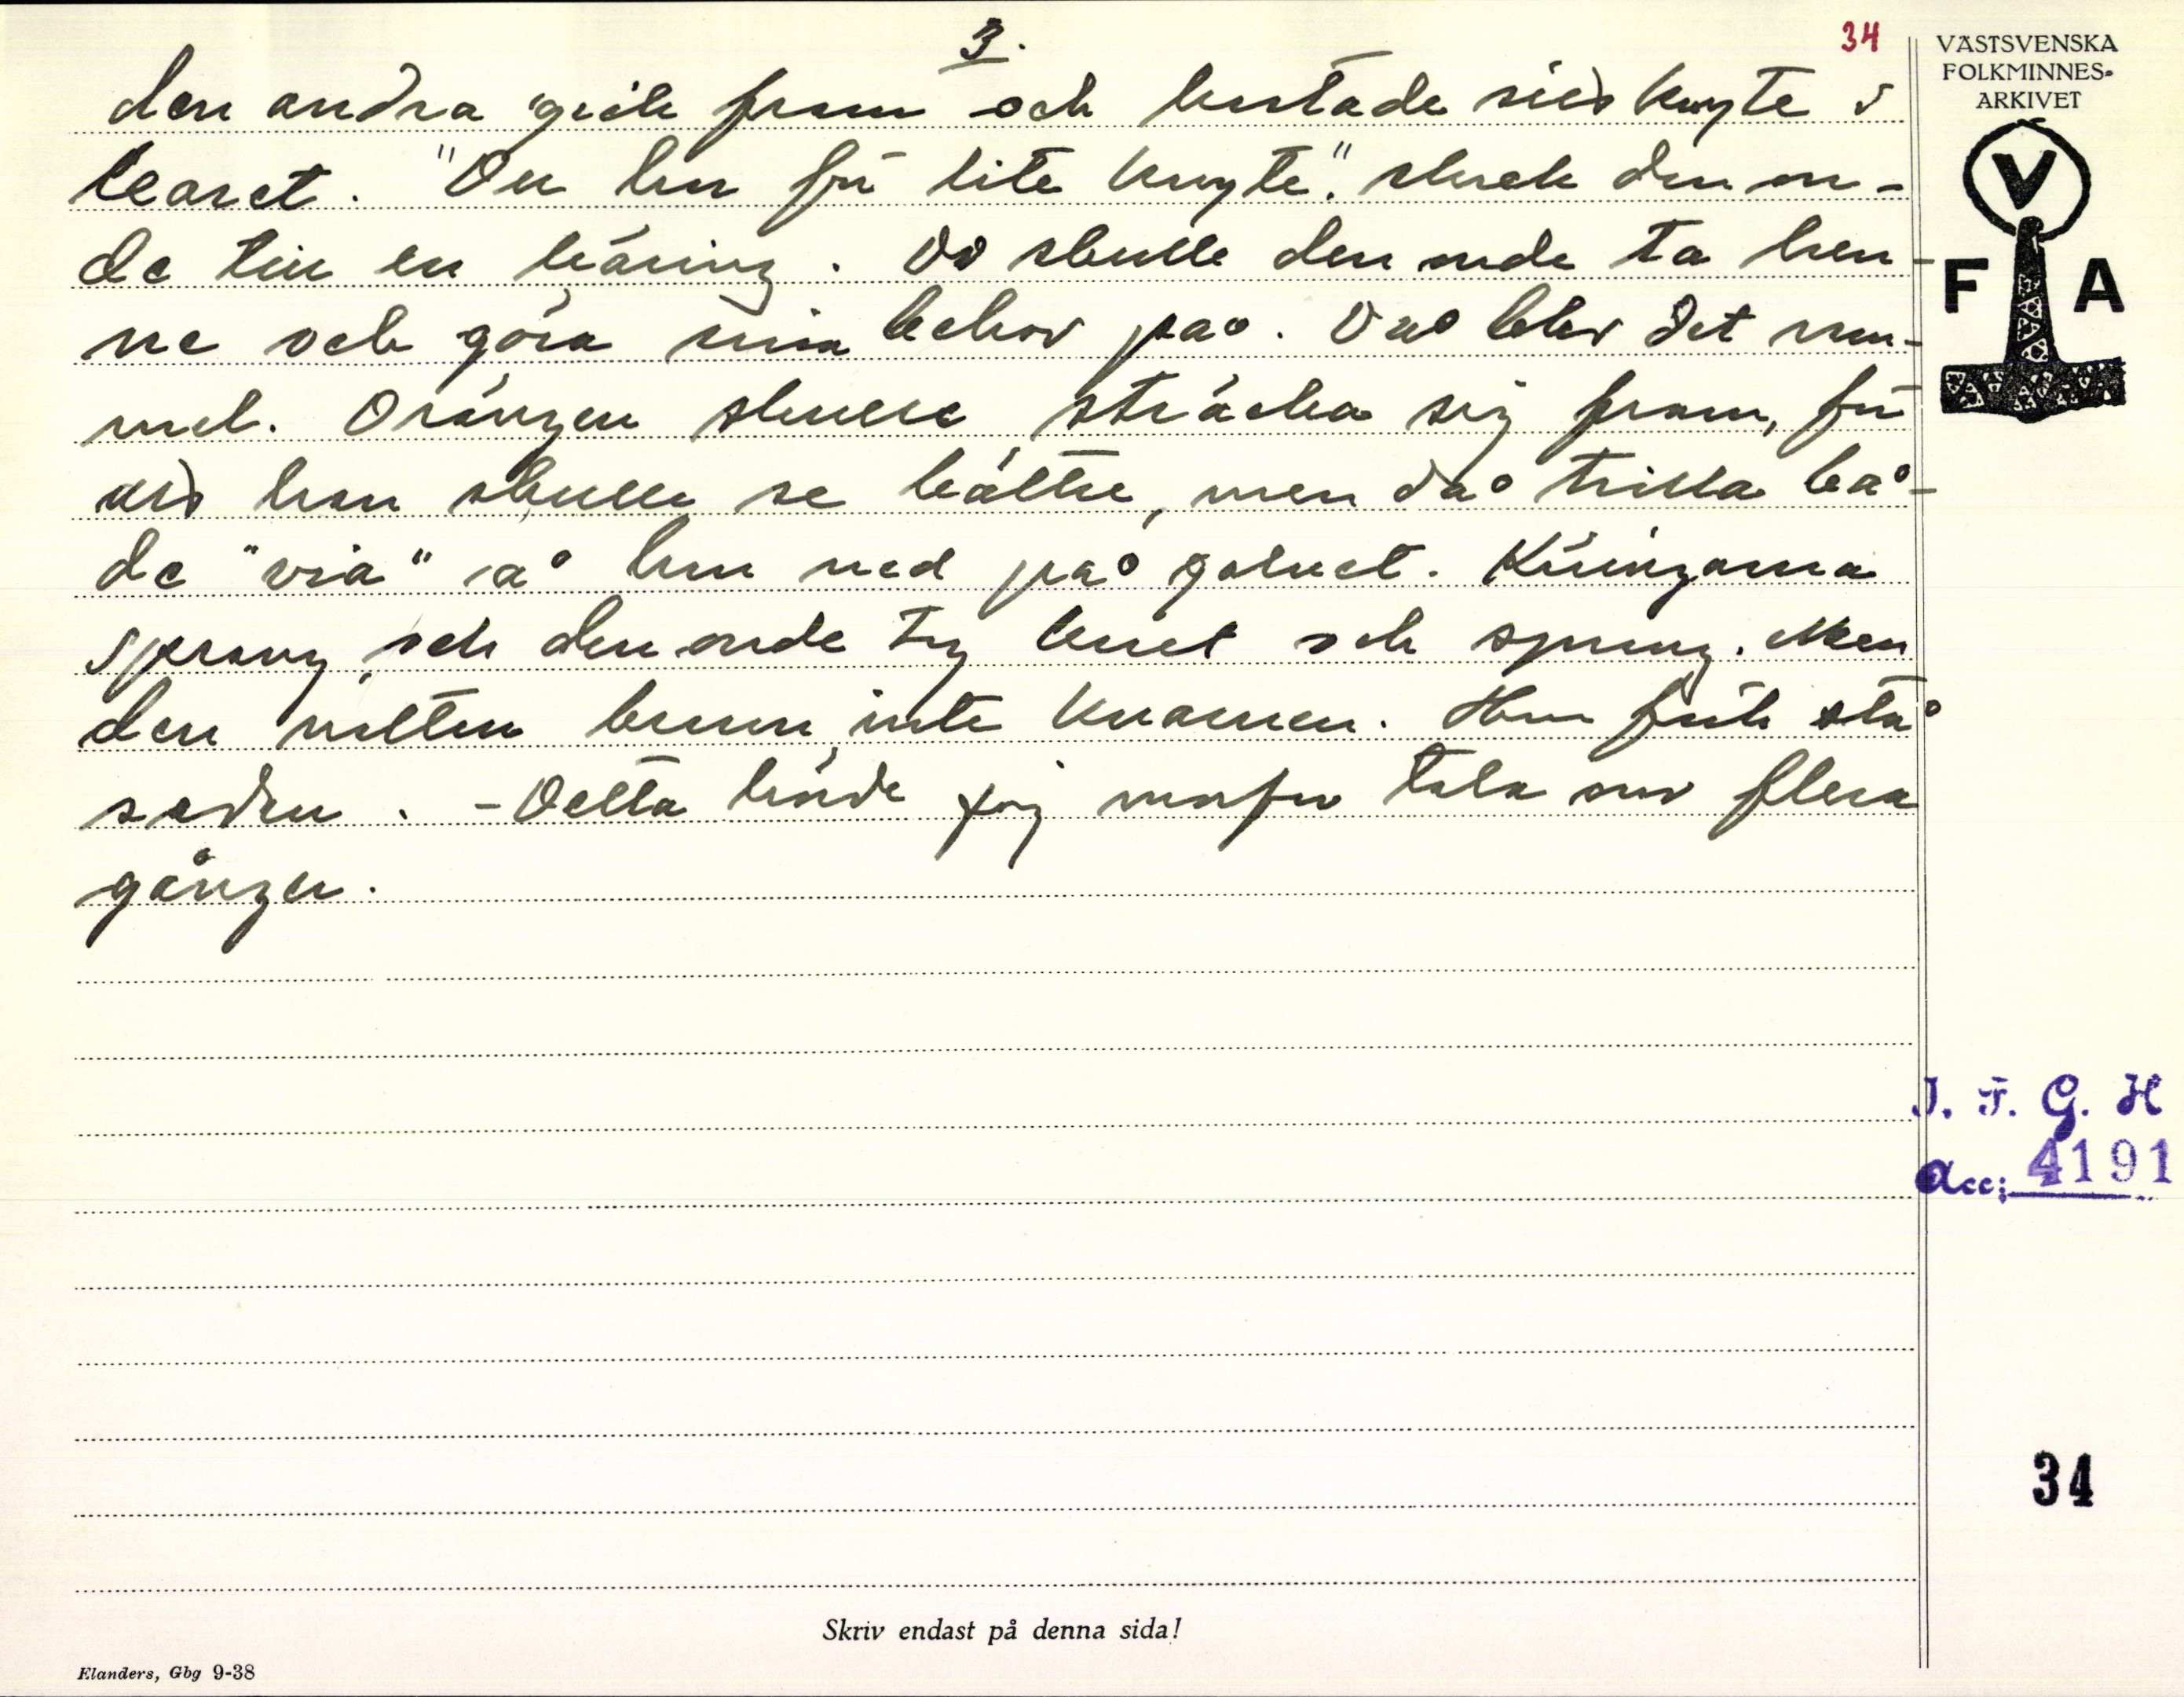 3.
34
VÄSTSVENSKA
FOLKMINNES-
ARKIVET
V
F A
den andra gick fram och kastade sitt knyte i
karet. "Du har för lite knyte", skrek den on-
de till en käring. Då skulle den onde ta hen-
ne och göra sina behov på. Då blev det rum-
mel. Drängen skulle sträcka sig fram, för
att han skulle se bättre, men då trilla bå-
de "via" å han ned på golvet. Käringarna
sprang, och den onde tog karet och sprang. Men
den natten brann inte kvarnen. Hon fick stå
sedan. - Detta hörde jag morfar tala om flera
gånger.
I. F. G. H
Acc: 4191
34
Skriv endast på denna sida!
Elanders, Gbg 9-38